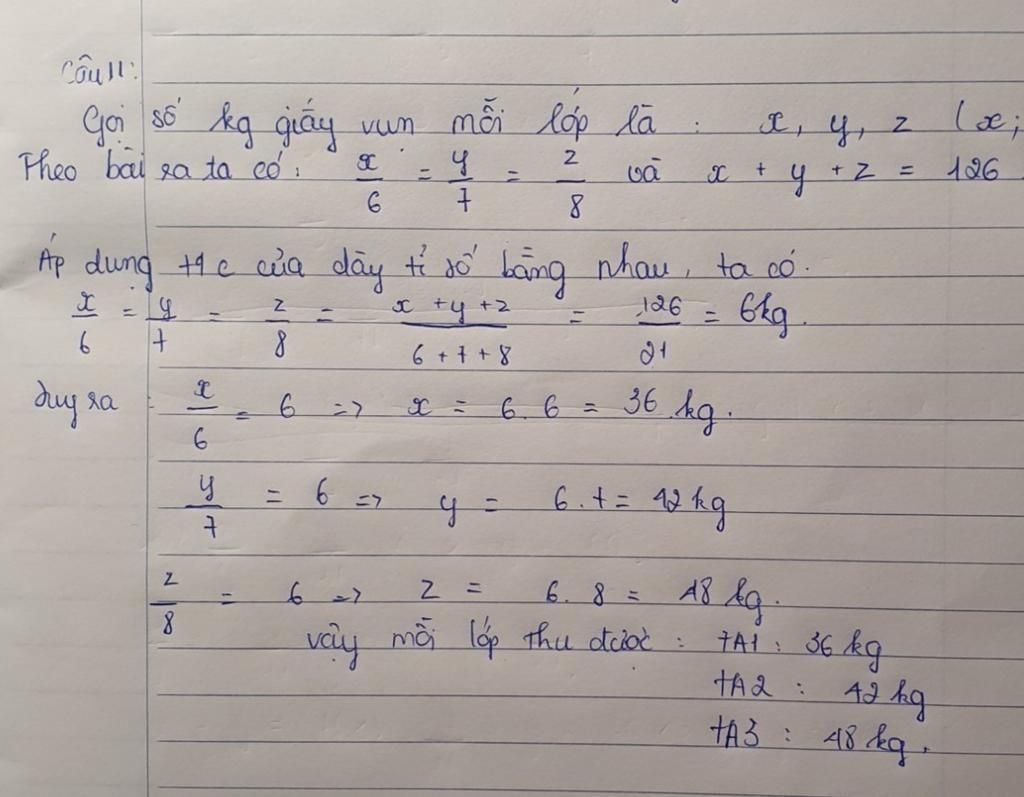 Câu 11:
Gọi số kg giấy vụn mỗi lớp là : x, y, z (x;
Theo bài ra ta có: x/6 = y/7 = z/8 và x + y + z = 126
Áp dụng t/c của dãy tỉ số bằng nhau, ta có.
x/6 = y/7 = z/8 = (x + y + z)/(6 + 7 + 8) = 126/21 = 6kg.
suy ra : x/6 = 6 => x = 6.6 = 36 kg.
y/7 = 6 => y = 6.7 = 42 kg
z/8 = 6 => z = 6.8 = 48 kg.
vậy mỗi lớp thu được : 7A1 : 36 kg
7A2 : 42 kg
7A3 : 48 kg.